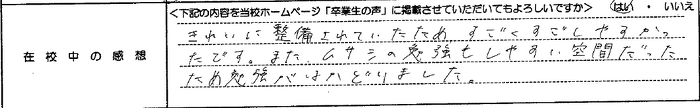 <下記の内容を当校ホームページ「卒業生の声」に掲載させていただいてもよろしいですか> はい・いいえ
在校中の感想
きれいに整備されていたため、すごくすごしやすかっ
たです。また、ムサシの勉強もしやすい空間だった
ため勉強がはかどりました。